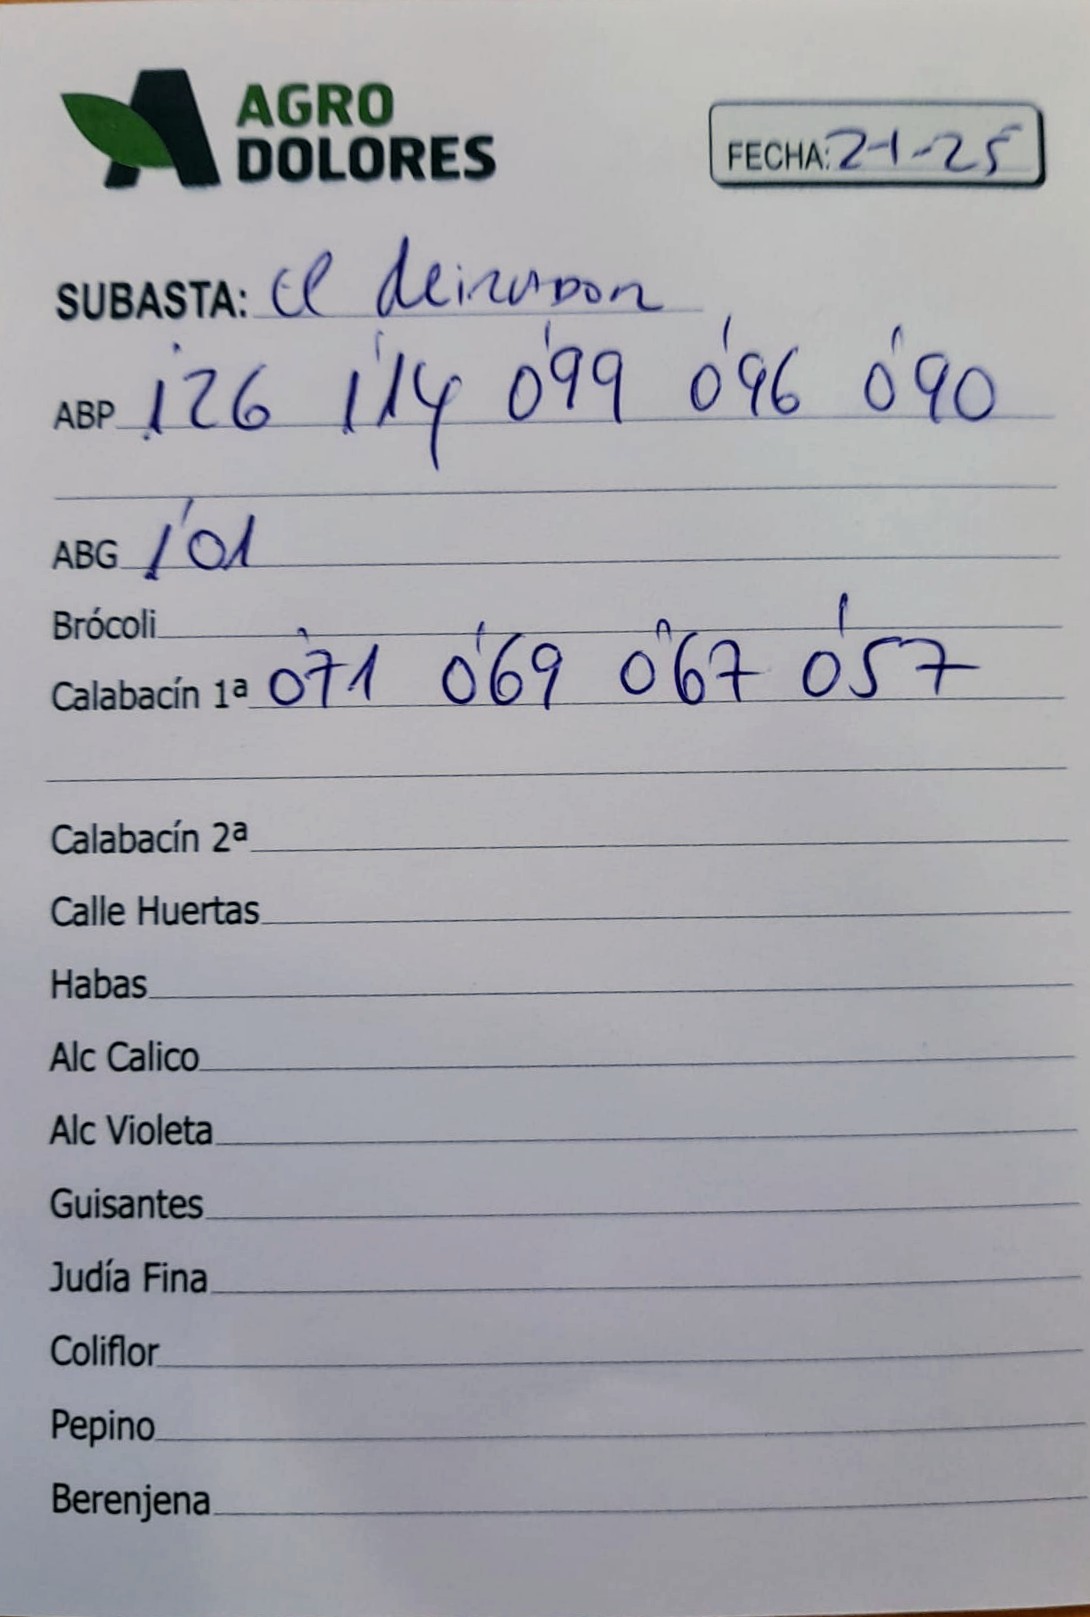 AGRO
DOLORES
FECHA: 2-1-25
SUBASTA: El
ABP 1'26 1'14 0'99 0'96 0'90
ABG 1'01
Brócoli
Calabacín 1ª 0'71 0'69 0'67 0'57
Calabacín 2ª
Calle Huertas
Habas
Alc Calico
Alc Violeta
Guisantes
Judía Fina
Coliflor
Pepino
Berenjena